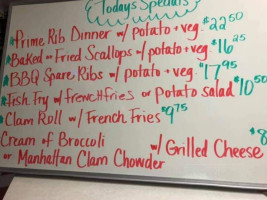 Todays Specials
Prime Rib Dinner w/potato+veg. $22.50
Baked or Fried Scallops w/potato+veg $16.25
BBQ Spare Ribs w/potato+veg $17.95
Fish Fry w/frenchfries or potato salad $10.50
Clam Roll w/ French Fries $9.75
Cream of Broccoli w/Grilled Cheese $8
or Manhattan Clam Chowder